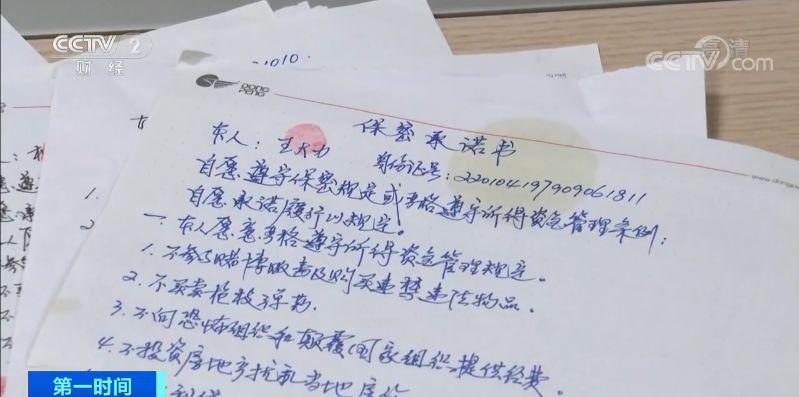 CCTV 2
财经
高清
CCTV.com
1010.
DONG
PENG
保密承诺书
本人：王大力 身份证号：220104197909061811
自愿遵守保密规定或严格遵守所得资金管理条例；
自愿承诺履行以规定。
一、本人愿意严格遵守所得资金管理规定。
1. 不参与赌博吸毒及购买违禁违法物品。
2. 不买卖枪枝弹药.
3. 不向恐怖组织和颠覆国家组织提供经费。
4. 不投资房地产扰乱当地房价
第一时间